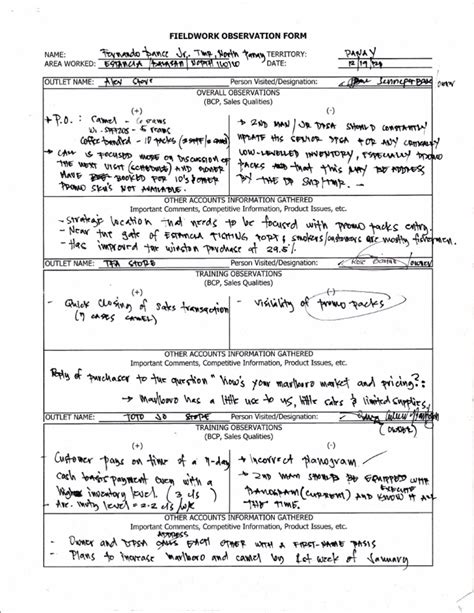 FIELDWORK OBSERVATION FORM
NAME: Fernando Jr. TMR, North Panay TERRITORY: PANAY
AREA WORKED: ESTANCIA NORTH ILOILO DATE: 12/19/
OUTLET NAME: Alex Store Person Visited/Designation:
OVERALL OBSERVATIONS
(BCP, Sales Qualities)
(+) (-)
P.O.: Camel - reams
reams
Coffee bonded - 10 packs
CALL IS FOCUSED MORE ON DISCUSSION OF
THE NEXT VISIT (SCHEDULE) AND
MAKE BOOKED FOR 10's &
PROMO SKU's NOT AVAILABLE.
2ND MAN / JR DPSA SHOULD CONSTANTLY
UPDATE HIS SENIOR DPSA FOR ANY CRITICALLY
LOW-LEVELED INVENTORY, ESPECIALLY PROMO
PACKS AND THAT THIS MAY BE ADDRESS
BY THE SUP/TMR.
OTHER ACCOUNTS INFORMATION GATHERED
Important Comments, Competitive Information, Product Issues, etc.
- Strategic location that needs to be focused with promo packs entry.
- Near the gate of ESTANCIA FISHING PORT & smokers/customers are mostly fishermen.
- Has improved the winston purchase at 29.5%.
OUTLET NAME: STORE Person Visited/Designation: OWNER
TRAINING OBSERVATIONS
(BCP, Sales Qualities)
(+) (-)
- Quick closing of sales transaction
(7 CASES CAMEL)
- visibility of promo packs
OTHER ACCOUNTS INFORMATION GATHERED
Important Comments, Competitive Information, Product Issues, etc.
Reply of purchaser to the question "how's your marlboro market and pricing?:
→ marlboro has a little use to us, little sales & limited supplies
OUTLET NAME: TOTO JO STORE Person Visited/Designation:
(OWNER)
TRAINING OBSERVATIONS
(BCP, Sales Qualities)
(+) (-)
- Customer pays on time of a 7-day
cash basis payment even with a
higher inventory level (3 c/s)
- Ave. invty level = 2-2 c/s /wk
- Incorrect planogram
- 2ND MAN SHOULD BE EQUIPPED WITH
PLANOGRAM (CURRENT) AND EXECUTE KNOW IT ALL
THE TIME.
OTHER ACCOUNTS INFORMATION GATHERED
Important Comments, Competitive Information, Product Issues, etc.
- Owner and DPSA CALLS EACH OTHER WITH A FIRST-NAME BASIS
- Plans to increase marlboro and camel by 1st week of January